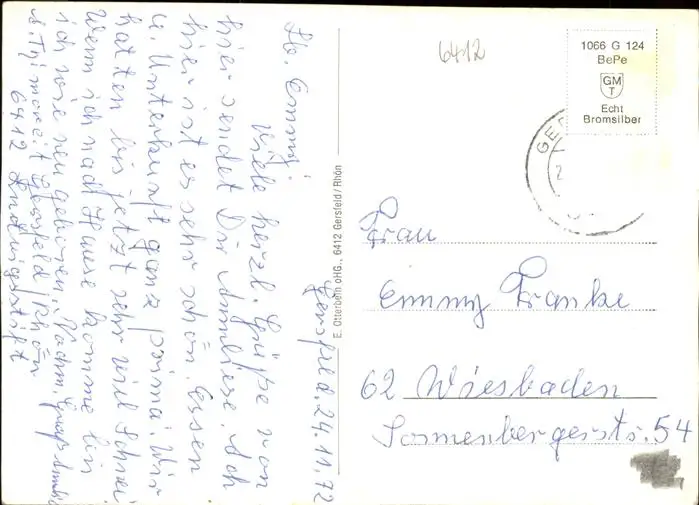 Gersfeld. 24.11.72
Lb. Emmy!
Viele herzl. Grüße von
hier sendet Dir Anneliese. Ich
hier ist es sehr schön. Essen
u. Unterkunft ganz prima. Wir
hatten bis jetzt sehr viel Schnee
Wenn ich nach Hause komme bin
ich wie neu geboren. Nochm. Gruß
z. Zt. Gersfeld/Rhön
6412 Ludwigstift
E. Otterbein oHG., 6412 Gersfeld/Rhön
6412
1066 G 124
BePe
GM
T
Echt
Bromsilber
GE
2
Frau
Emmy Franke
62 Wiesbaden
Sonnenbergerstr. 54